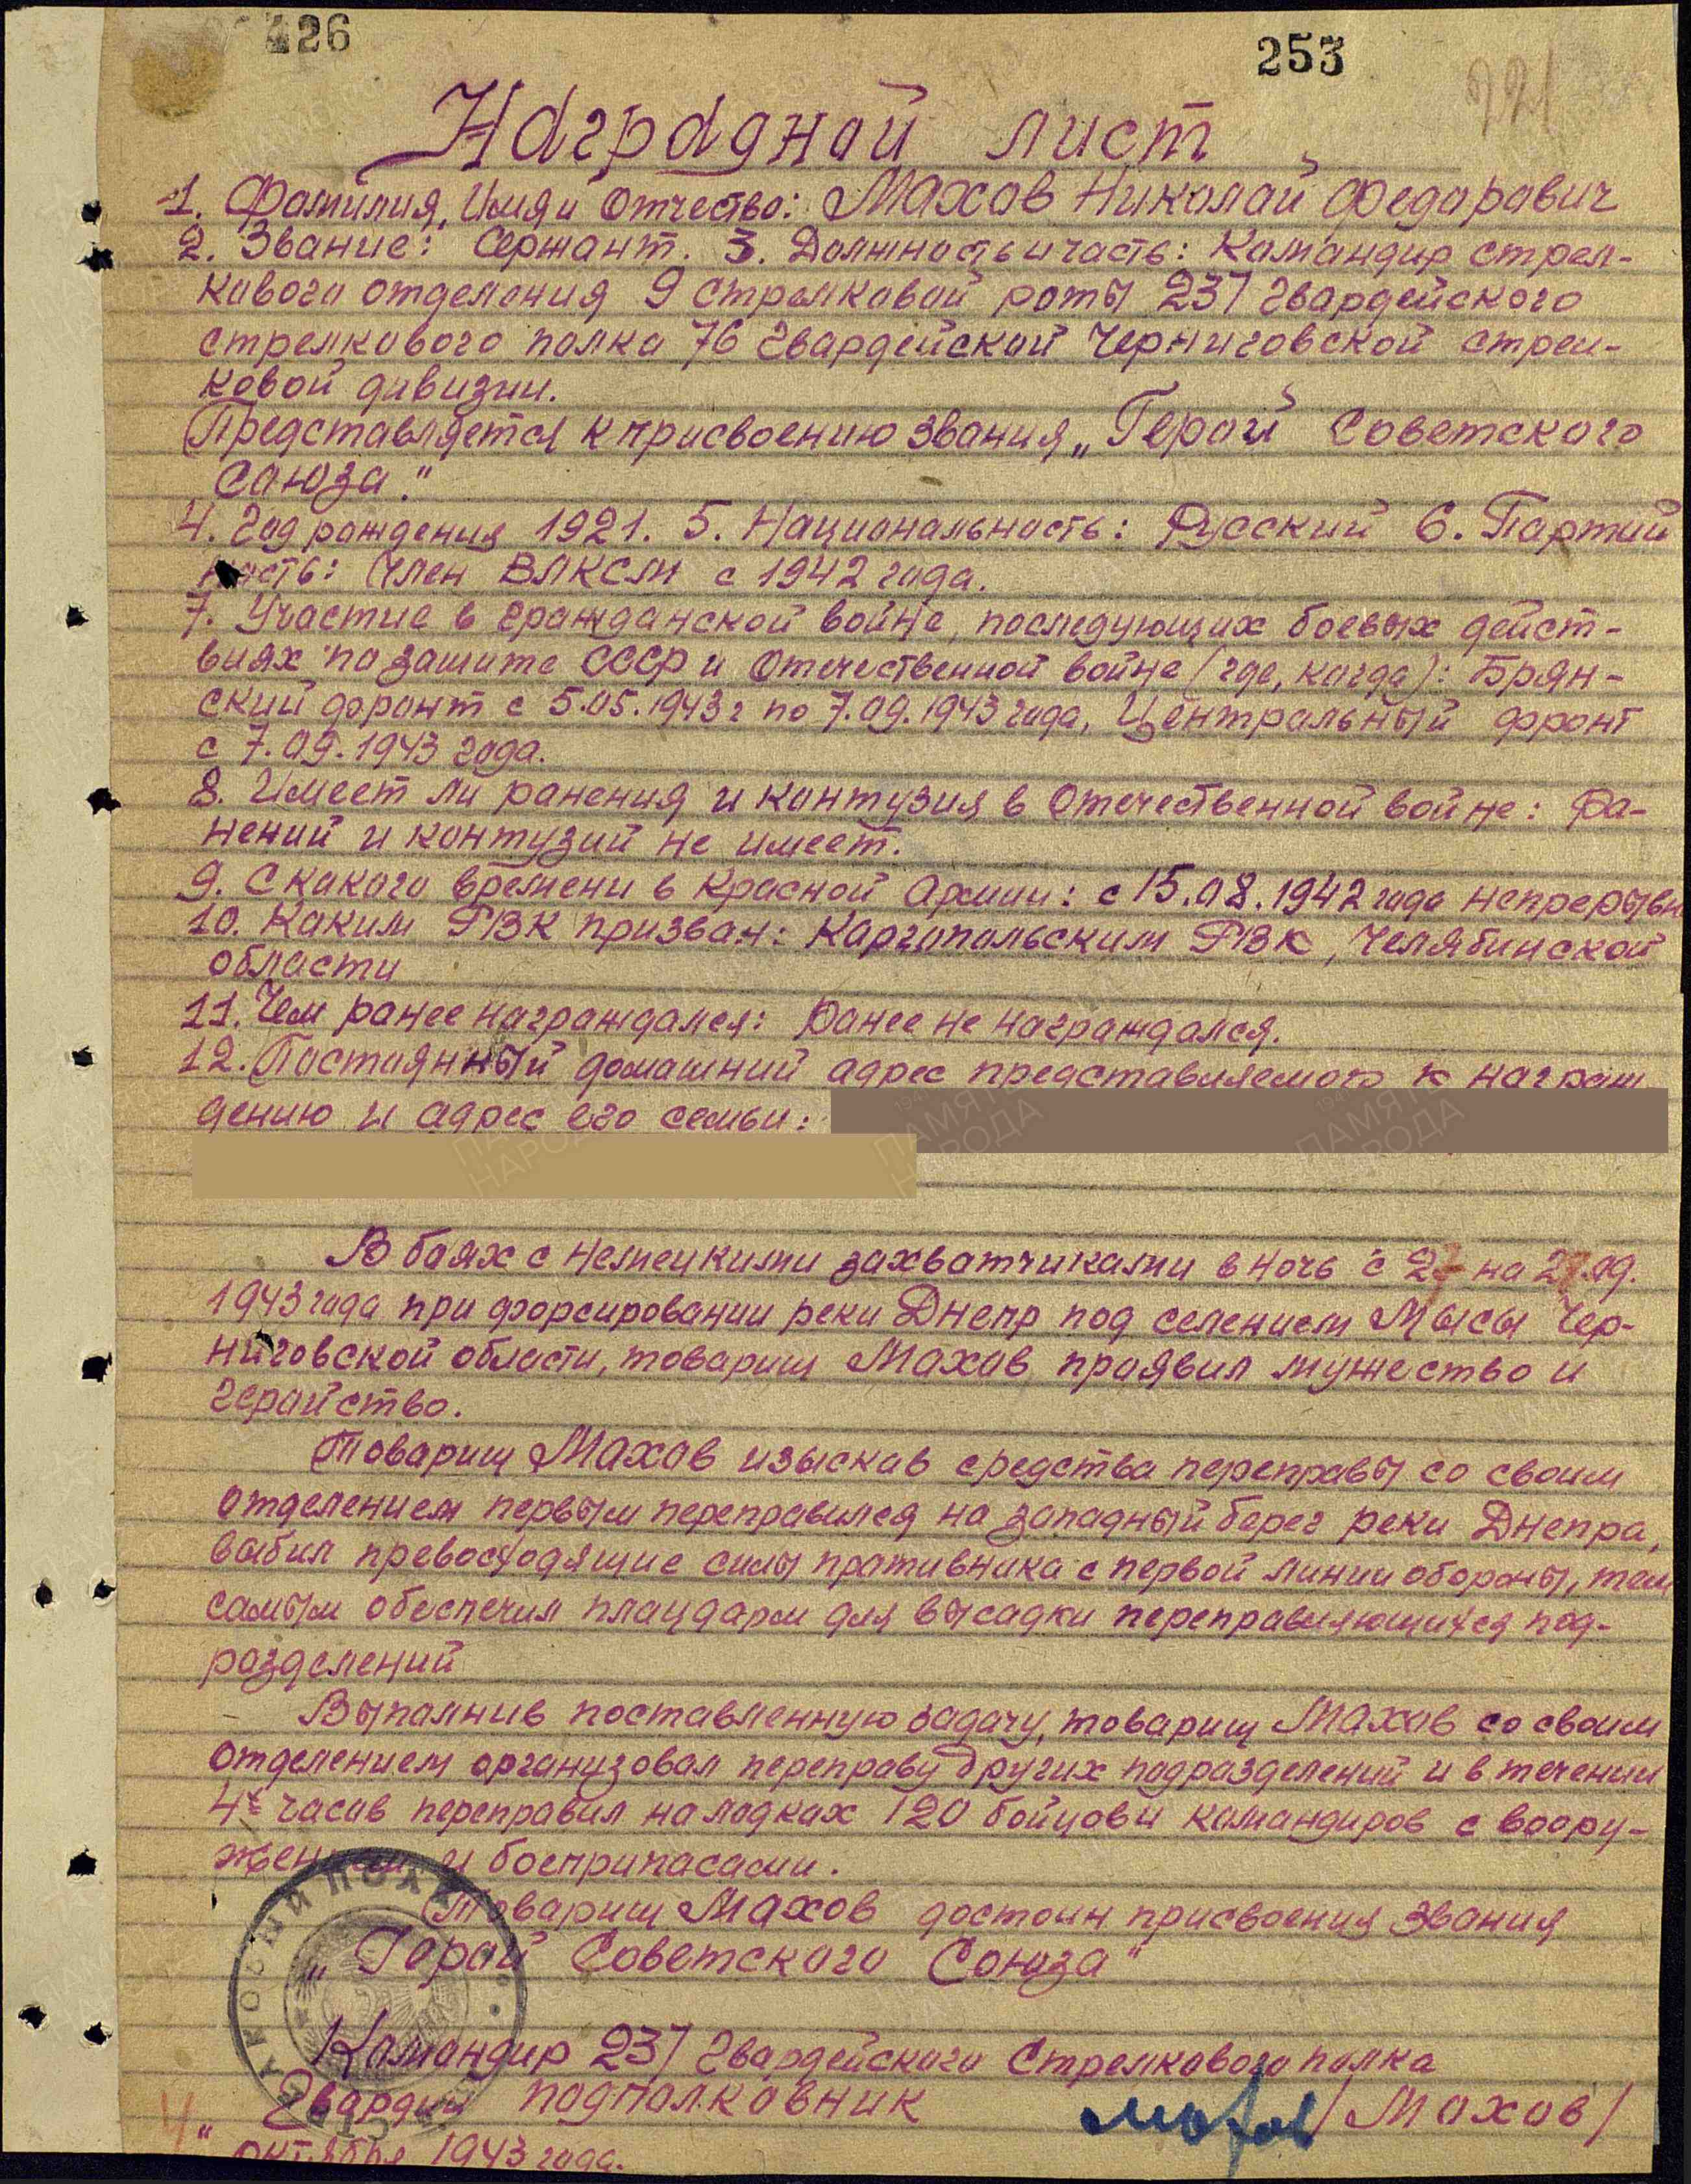 126
253
221
Наградной лист
1. Фамилия, Имя и Отчество: Махов Николай Федорович
2. Звание: Сержант. 3. Должность и часть: Командир стрел-
кового отделения 9 стрелковой роты 237 гвардейского
стрелкового полка 76 гвардейской Черниговской стрел-
ковой дивизии.
Представляется к присвоению звания „Герой Советского
Союза."
4. Год рождения 1921. 5. Национальность: Русский 6. Партий
ность: Член ВЛКСМ с 1942 года.
7. Участие в гражданской войне, последующих боевых дейст-
виях по защите СССР и Отечественной войне (где, когда): Брян-
ский фронт с 5.05.1943 г по 7.09.1943 года, Центральный фронт
с 7.09.1943 года.
8. Имеет ли ранения и контузия в Отечественной войне: Ра-
нений и контузий не имеет.
9. С какого времени в Красной Армии: с 15.08.1942 года непрерывн
10. Каким РВК призван: Каргопольским РВК, Челябинской
области
11. Чем ранее награждался: Ранее не награждался.
12. Постоянный домашний адрес представляемого к награж
дению и адрес его семьи:
В боях с немецкими захватчиками в ночь с 27 на 27.09.
1943 года при форсировании реки Днепр под селением Мысы Чер-
ниговской области, товарищ Махов проявил мужество и
геройство.
Товарищ Махов изыскав средства переправы со своим
отделением первым переправился на западный берег реки Днепра,
выбил превосходящие силы противника с первой линии обороны, тем
самым обеспечил плацдарм для высадки переправляющихся под-
разделений
Выполнив поставленную задачу, товарищ Махов со своим
отделением организовал переправу других подразделений и в течении
4х часов переправил на лодках 120 бойцов и командиров с воору-
жением и боеприпасами.
Товарищ Махов достоин присвоения звания
„Герой Советского Союза"
Командир 237 Гвардейского Стрелкового полка
Гвардии подполковник Махов /Махов/
4 " октября 1943 года.